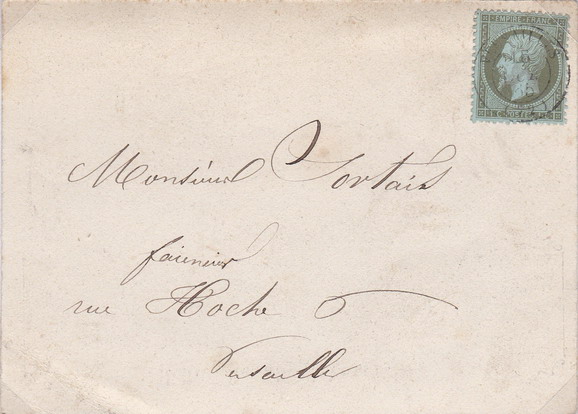 EMPIRE FRANC.
1 C. POSTES 1 C.
Monsieur Tortais
faiencier
rue Hoche 6
Versailles